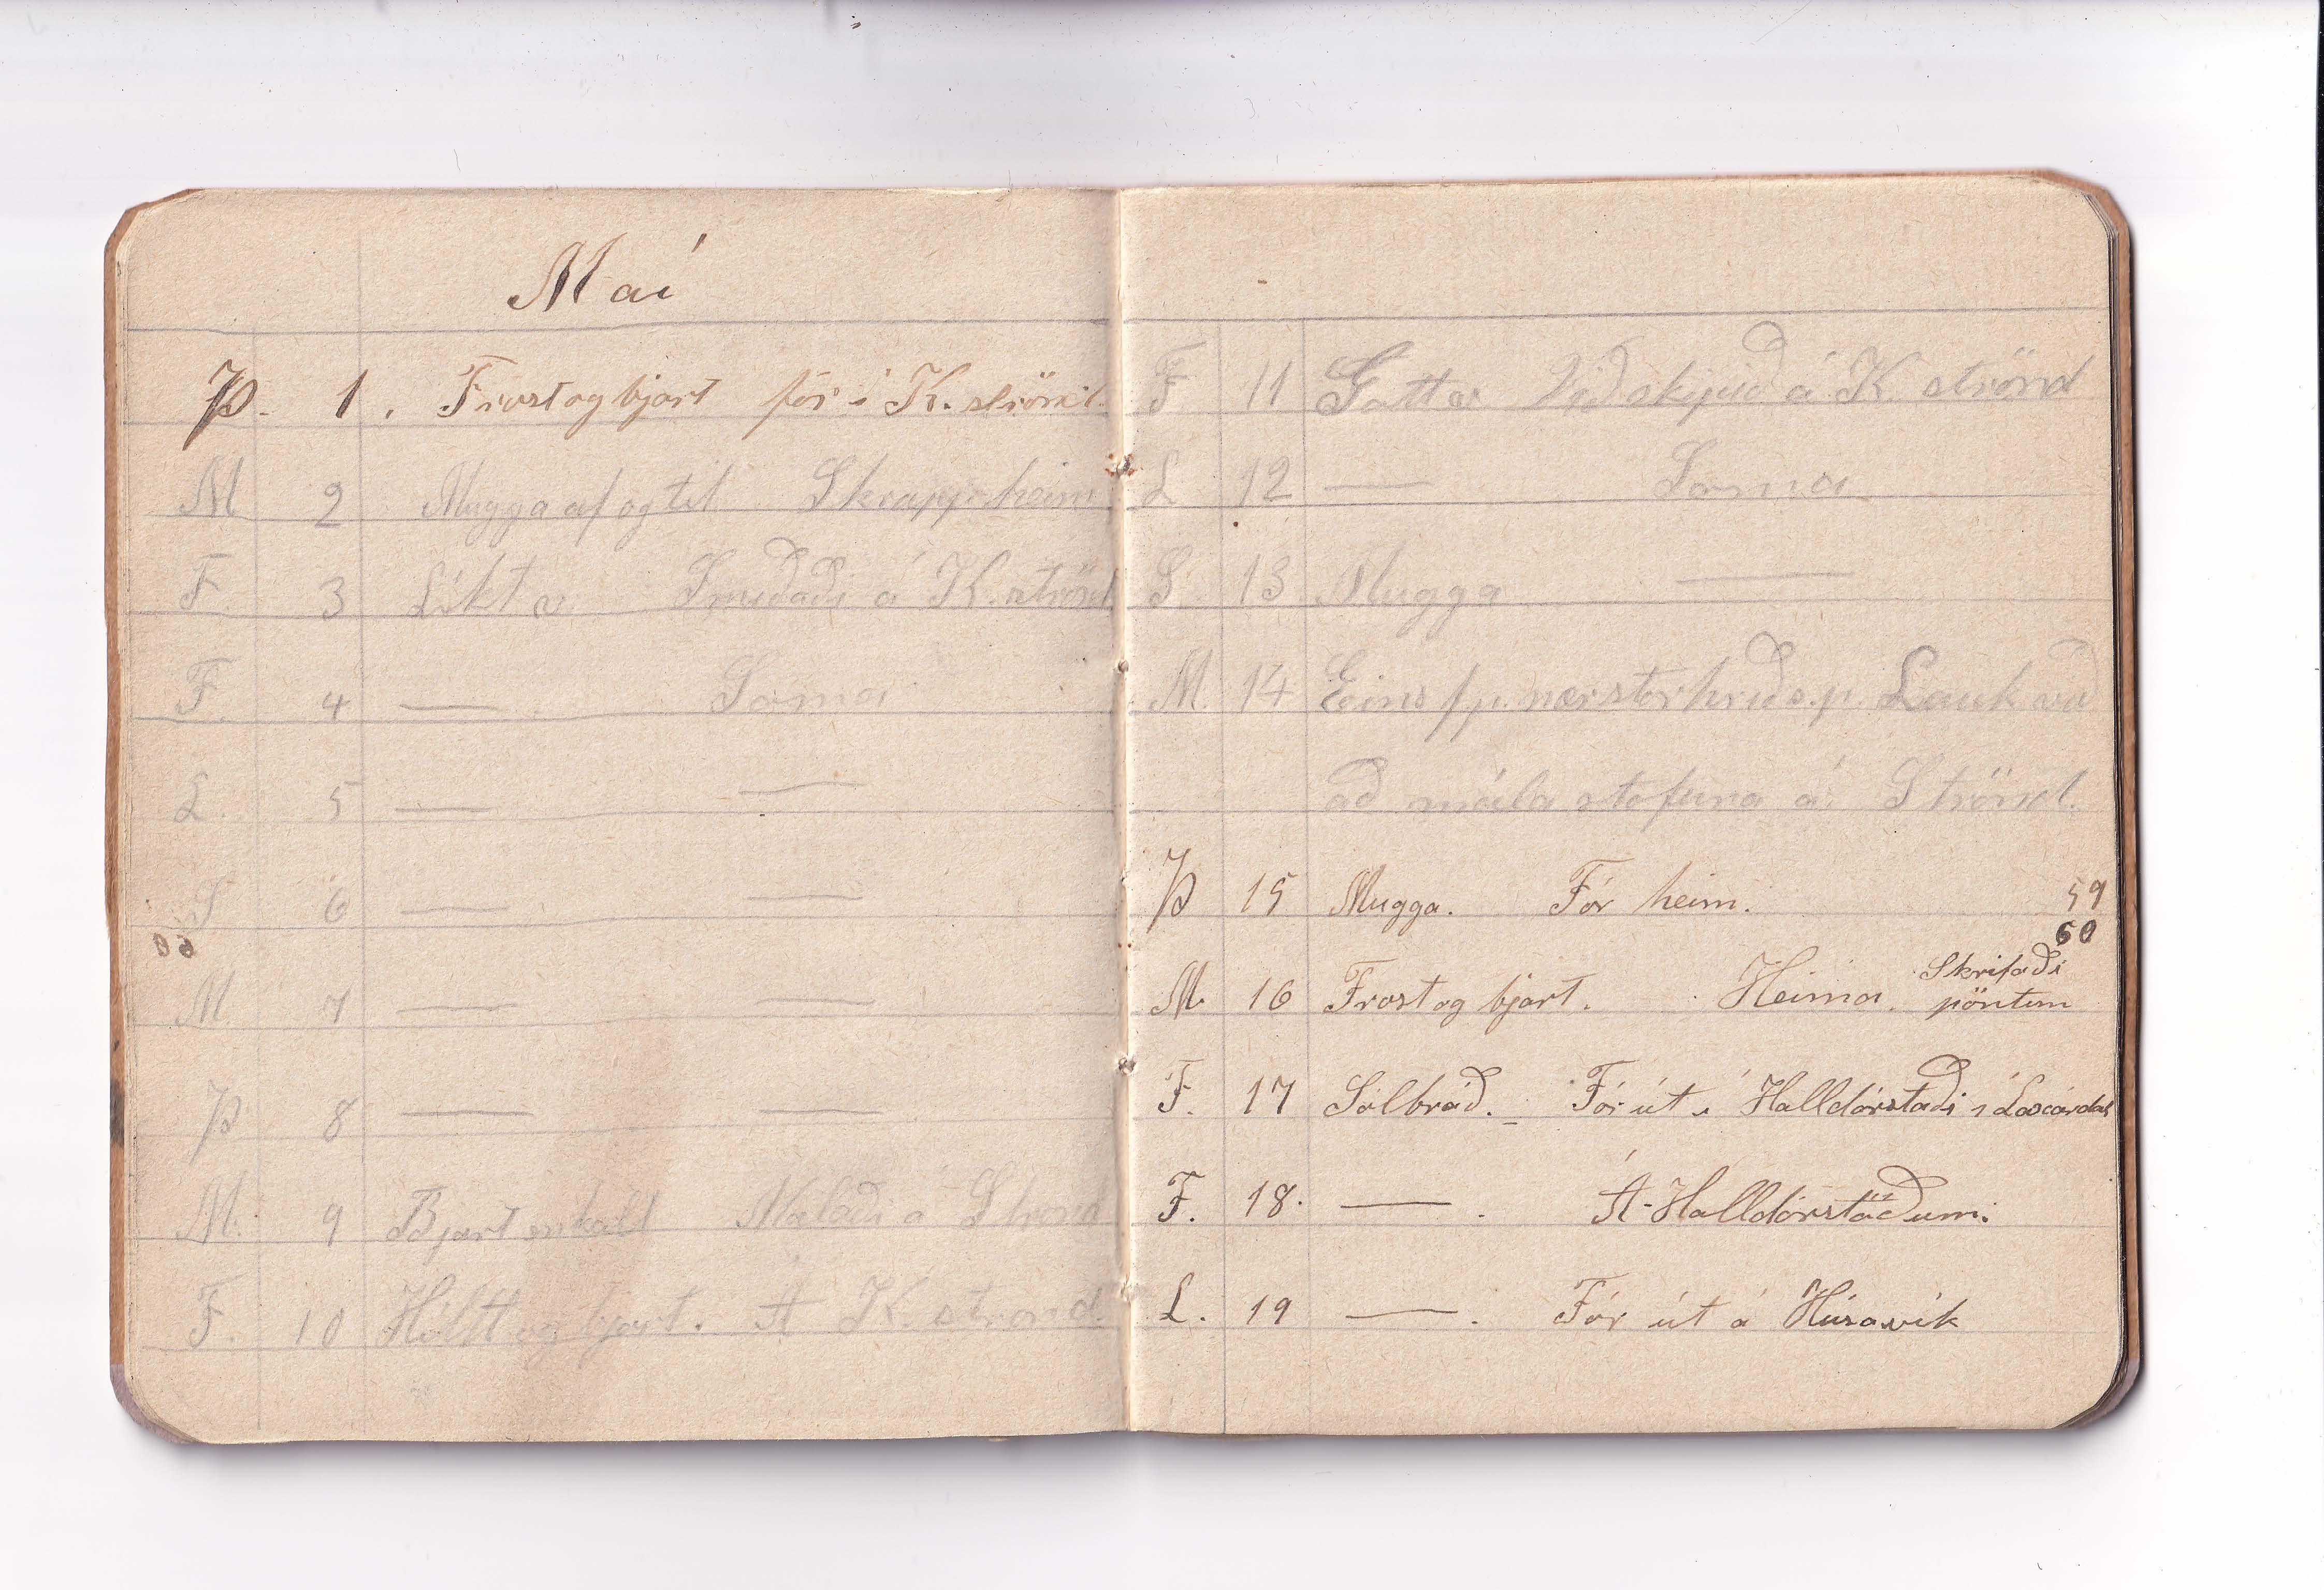 Maí
Þ. 1. Frost og bjart fór í K. strönd.
M 2 Mugga af og til Skrapp heim
F. 3 Líkt v. Smíðaði á K. strönd
F. 4 — Sama
L. 5 — —
S 6 — —
M. 7 — —
Þ 8 — —
M. 9 Bjart en kalt Málaði á Strönd
F. 10 og bjart. Á K. strönd.
F 11 Gott v. Við á K. strönd
L 12 — Sama
S. 13 Mugga —
M. 14 Eins f.p. nær stórhríð s.p. Lauk við
að mála stofuna á Strönd.
Þ 15 Mugga. Fór heim. 59
60
M. 16 Frost og bjart. Heima. Skrifaði
pöntun
F. 17 Sólbráð. Fór út í Halldórstaði í Laxárdal
F. 18. — . Á Halldórstöðum.
L. 19 — . Fór út á Húsavík